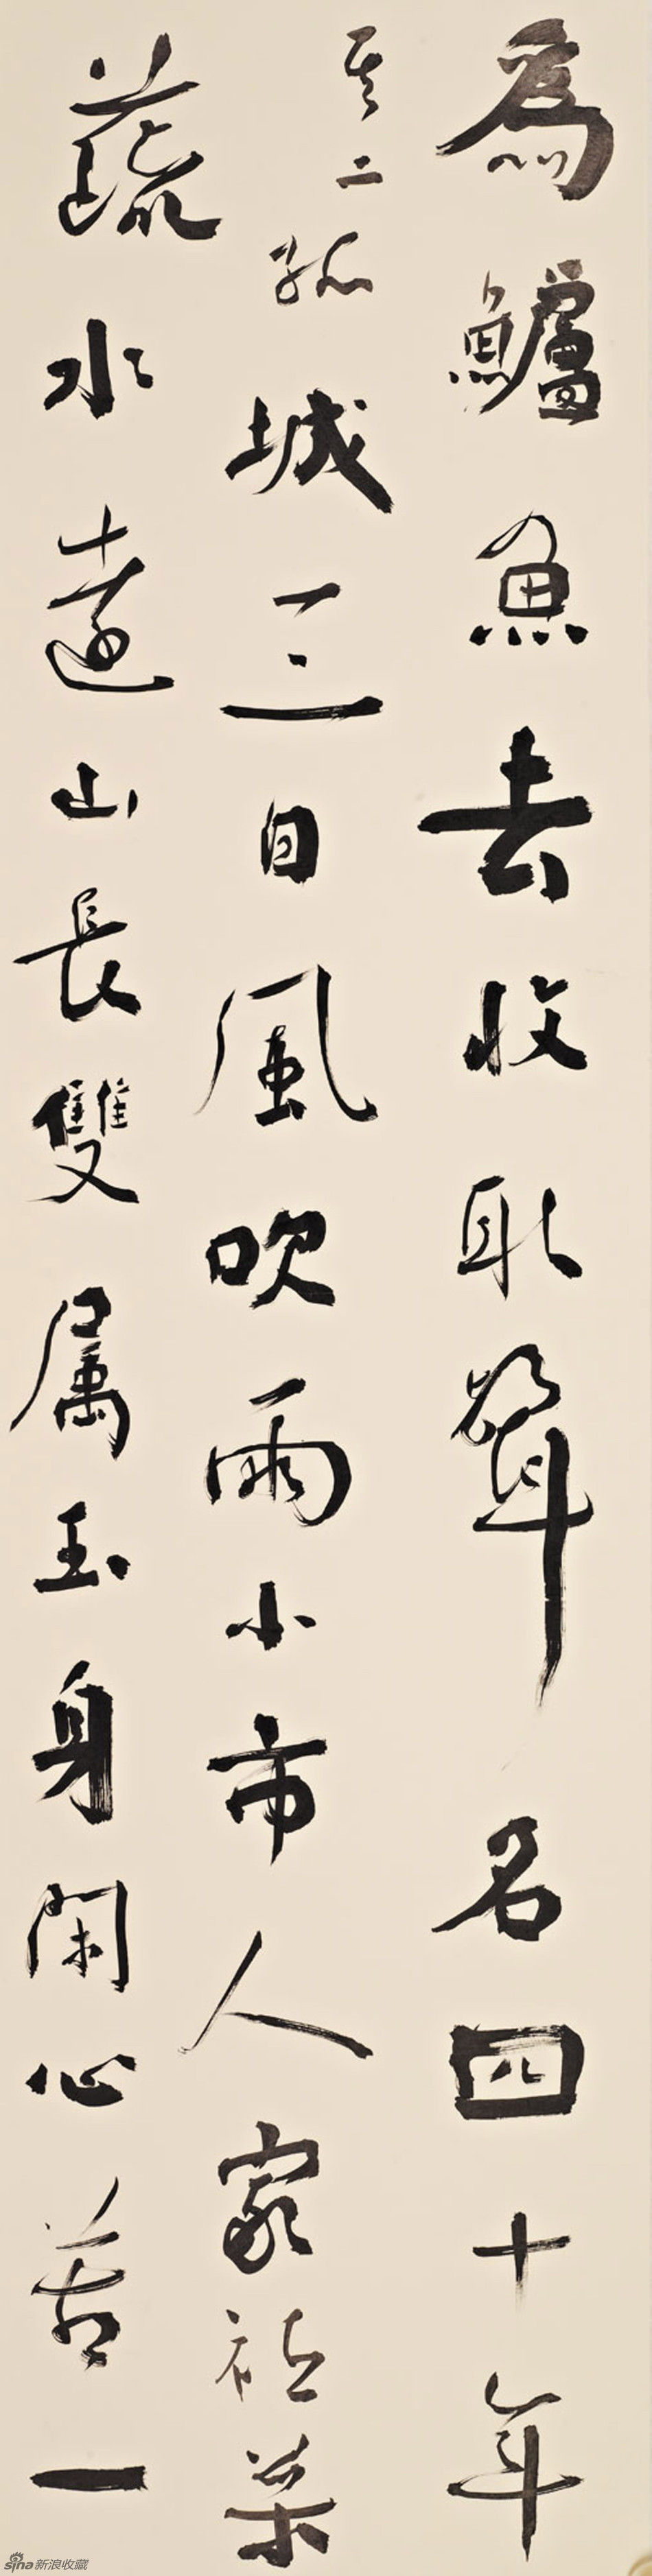 為鱸魚去收取聲名四十年
其二孤城三日風吹雨小市人家祗菜
蔬水遠山長雙属玉身閑心苦一
sina新浪收藏